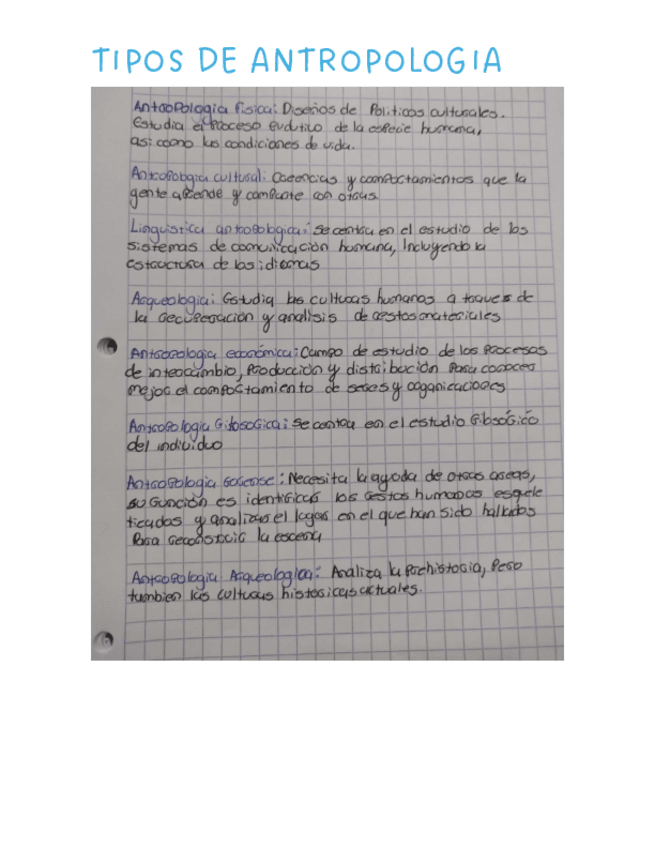 TIPOS DE ANTROPOLOGIA
Antropologia fisica: Diseños de Politicas culturales.
Estudia el Proceso evolutivo de la especie humana,
asi como las condiciones de vida.
Antropologia cultural: Creencias y comportamientos que la
gente aprende y comparte con otras
Linguistica antropologica: Se centra en el estudio de los
sistemas de comunicación humana, Incluyendo la
estructura de los idiomas
Arqueologia: Estudia las culturas humanas a traves de
la recuperación y analisis de restos materiales
Antropologia económica: Campo de estudio de los Procesos
de intercambio, Producción y distribución Para conocer
mejor el comportamiento de seres y organizaciones
Antropologia filosofica: se centra en el estudio filosófico
del individuo
Antropologia forense: Necesita la ayuda de otras areas,
su función es identificar los restos humanos esquele
ticados y analizar el lugar en el que han sido hallados
Para reconstruir la escena
Antropologia Arqueologica: Analiza la Prehistoria, Pero
tambien las culturas historicas actuales.